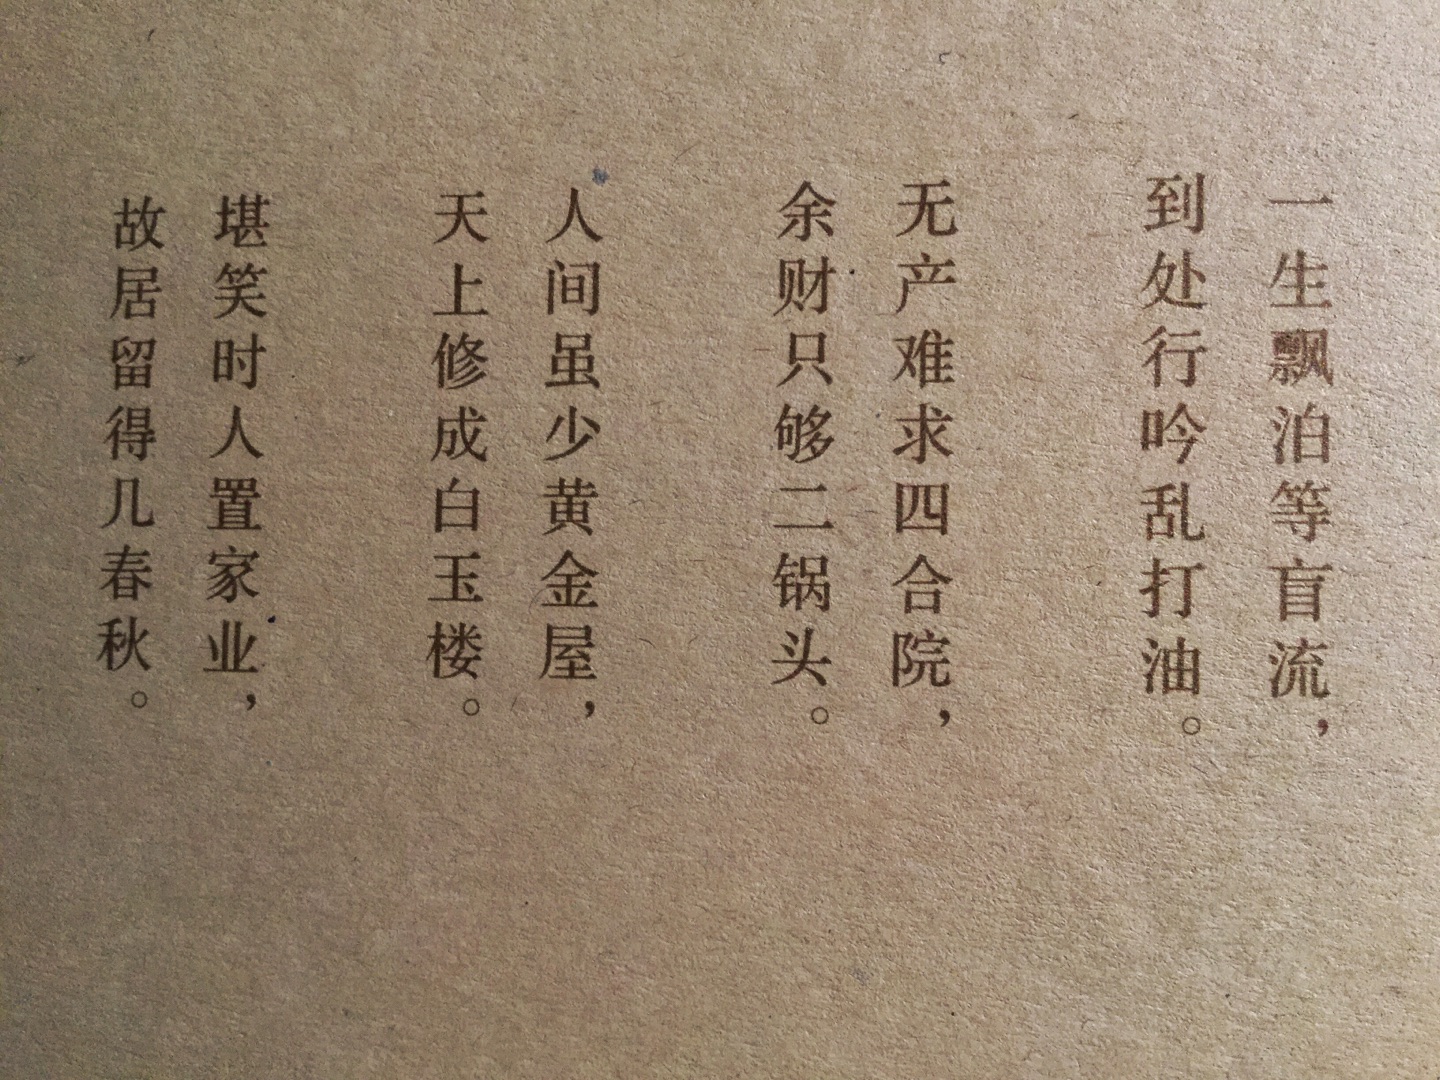 一生飘泊等盲流，
到处行吟乱打油。
无产难求四合院，
余财只够二锅头。
人间虽少黄金屋，
天上修成白玉楼。
堪笑时人置家业，
故居留得几春秋。